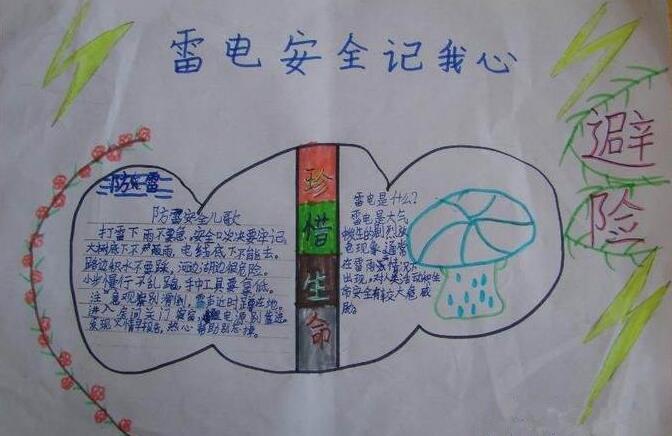 雷电安全记我心
避险
防雷
防雷安全儿歌
打雷下雨不要急,安全口诀要牢记。
大树底下不避雨,电线底下不能去。
路边积水不要踩,河边湖边很危险。
小步慢行不乱跑,手中工具要拿低。
注意观察别滑倒,雷声近时蹲在地。
进入房间关门窗,电源别靠近
发现火情早报告,热心帮助别忘掉。
珍惜生命
雷电是什么?
雷电是大气
生的剧烈放
电现象通常
在雨情况下
出现,对人类活动和生
命安全有较大危威
胁。